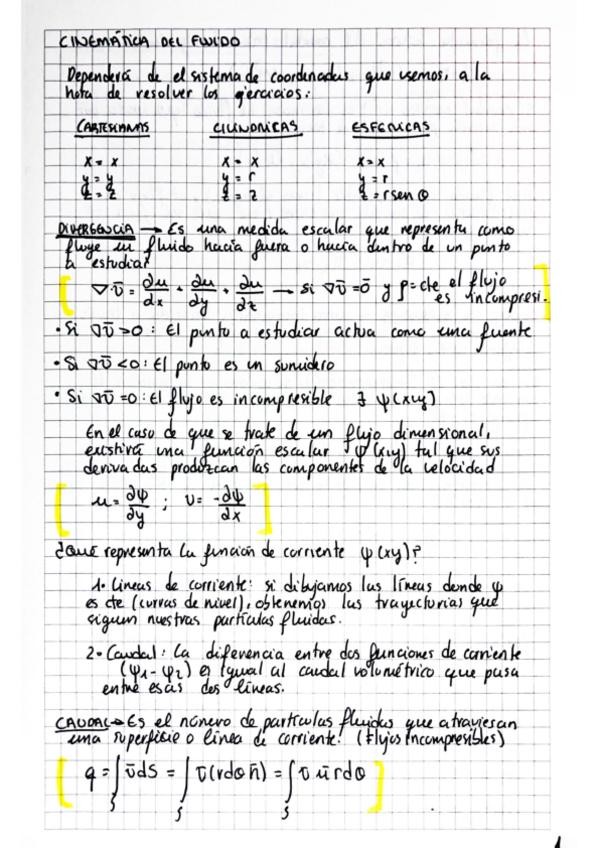 CINEMÁTICA DEL FLUIDO
Dependerá de el sistema de coordenadas que usemos, a la
hora de resolver los ejercicios:
CARTESIANAS CILINDRICAS ESFERICAS
x = x x = x x = x
y = y y = r y = r
z = z z = z z = r sen θ
DIVERGENCIA → Es una medida escalar que representa como
fluye un fluido hacia fuera o hacia dentro de un punto
a estudiar
∇·ῡ = ∂u/∂x + ∂u/∂y + ∂u/∂z → Si ∇ῡ = 0̄ y ρ = cte el flujo
es incompresi.
• Si ∇ῡ > 0 : El punto a estudiar actua como una fuente
• Si ∇ῡ < 0 : El punto es un sumidero
• Si ∇ῡ = 0 : El flujo es incompresible ∃ ψ(x,y)
En el caso de que se trate de un flujo dimensional,
existirá una función escalar ψ(x,y) tal que sus
derivadas produzcan las componentes de la velocidad
u = ∂ψ/∂y ; υ = -∂ψ/∂x
¿Qué representa la función de corriente ψ(xy)?
1• Lineas de corriente: si dibujamos las líneas donde ψ
es cte (curvas de nivel), obtenemos las trayectorias que
siguen nuestras partículas fluidas.
2• Caudal: La diferencia entre dos funciones de corriente
(ψ1 - ψ2) es igual al caudal volumétrico que pasa
entre esas dos líneas.
CAUDAL → Es el número de partículas fluidas que atraviesan
una superficie o línea de corriente. (Flujos incompresibles)
q = ∫ ῡ dS = ∫ ῡ (r dθ n̄) = ∫ υ ū r dθ
S S S
1